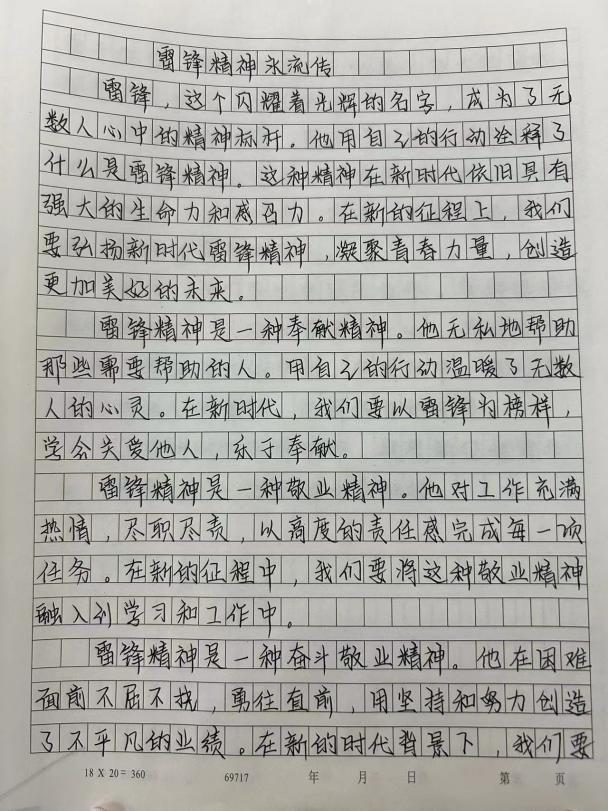 雷锋精神永流传
雷锋，这个闪耀着光辉的名字，成为了无
数人心中的精神标杆。他用自己的行动诠释了
什么是雷锋精神。这种精神在新时代依旧具有
强大的生命力和感召力。在新的征程上，我们
要弘扬新时代雷锋精神，凝聚青春力量，创造
更加美好的未来。
雷锋精神是一种奉献精神。他无私地帮助
那些需要帮助的人。用自己的行动温暖了无数
人的心灵。在新时代，我们要以雷锋为榜样，
学会关爱他人，乐于奉献。
雷锋精神是一种敬业精神。他对工作充满
热情，尽职尽责，以高度的责任感完成每一项
任务。在新的征程中，我们要将这种敬业精神
融入到学习和工作中。
雷锋精神是一种奋斗敬业精神。他在困难
面前不屈不挠，勇往直前，用坚持和努力创造
了不平凡的业绩。在新的时代背景下，我们要
18 X 20 = 360 69717 年 月 日 第 页